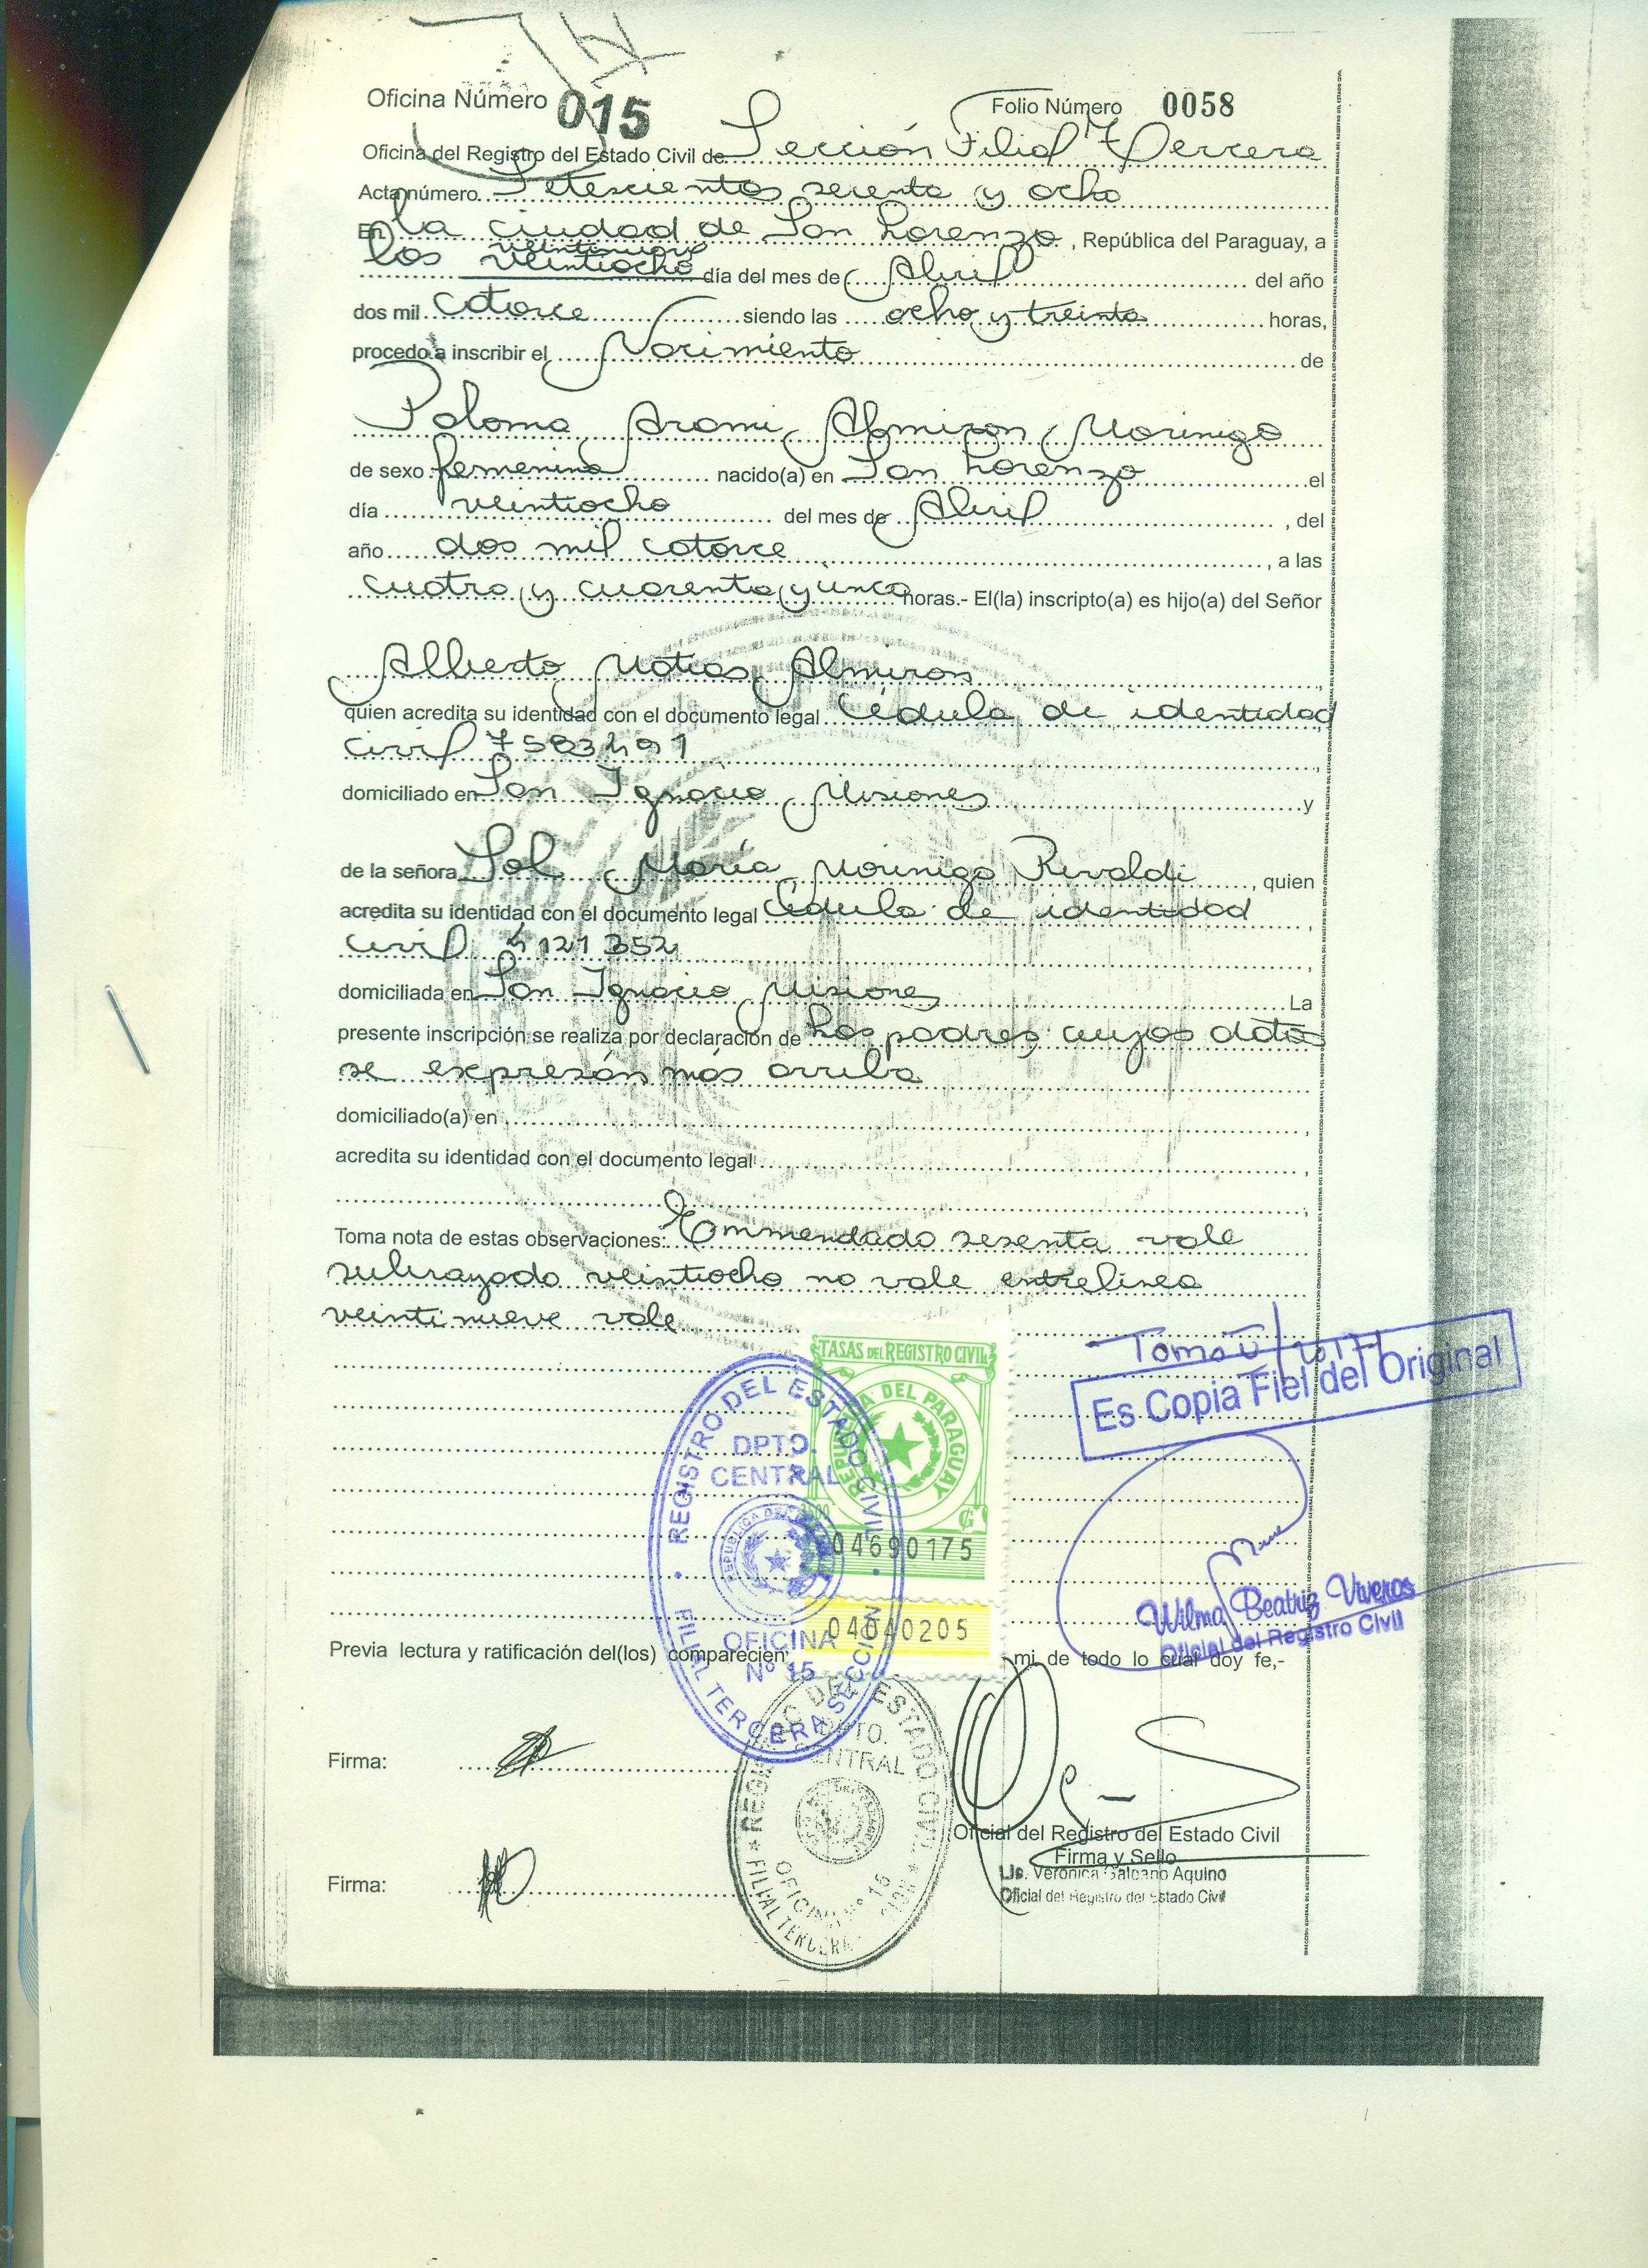 Oficina Número 015
Folio Número 0058
Oficina del Registro del Estado Civil de Sección Filial Tercera
Acta número Setescientos sesenta y ocho
En la ciudad de San Lorenzo, República del Paraguay, a
veintinueve
los veintiocho día del mes de Abril del año
dos mil catorce siendo las ocho y treinta horas,
procedo a inscribir el Nacimiento de
Paloma Arami Almiron Morinigo
de sexo femenino nacido(a) en San Lorenzo el
día veintiocho del mes de Abril, del
año dos mil catorce, a las
cuatro y cuarenta y horas.- El(la) inscripto(a) es hijo(a) del Señor
Alberto Matias Almiron,
quien acredita su identidad con el documento legal Cédula de identidad
civil,
domiciliado en San Ignacio Misiones y
de la señora Sol María Morinigo Rivaldi, quien
acredita su identidad con el documento legal Cédula de identidad,
civil 4121352,
domiciliada en San Ignacio Misiones La
presente inscripción se realiza por declaración de Los padres cuyos datos
se expresán más arriba
domiciliado(a) en,
acredita su identidad con el documento legal,
Toma nota de estas observaciones: Emmendado sesenta vale
subrayado veintiocho no vale entrelinea
veintinueve vale
TASAS DEL REGISTRO CIVIL
REPUBLICA DEL PARAGUAY
04690175
04640205
REGISTRO DEL ESTADO CIVIL
DPTO.
CENTRAL
REPUBLICA DEL
OFICINA
Nº 15
FILIAL TERCERA SECCION
Tomo
Es Copia Fiel del Original
Wilma Beatriz Viveros
Oficial del Registro Civil
Previa lectura y ratificación del(los) comparecien mi de todo lo cual doy fe,-
Firma:
DPTO.
CENTRAL
ESTADO CIVIL
OFICINA Nº 15
FILIAL TERCERA
Oficial del Registro del Estado Civil
Firma y Sello
Lic. Verónica Galeano Aquino
Oficial del Registro del Estado Civil
Firma: